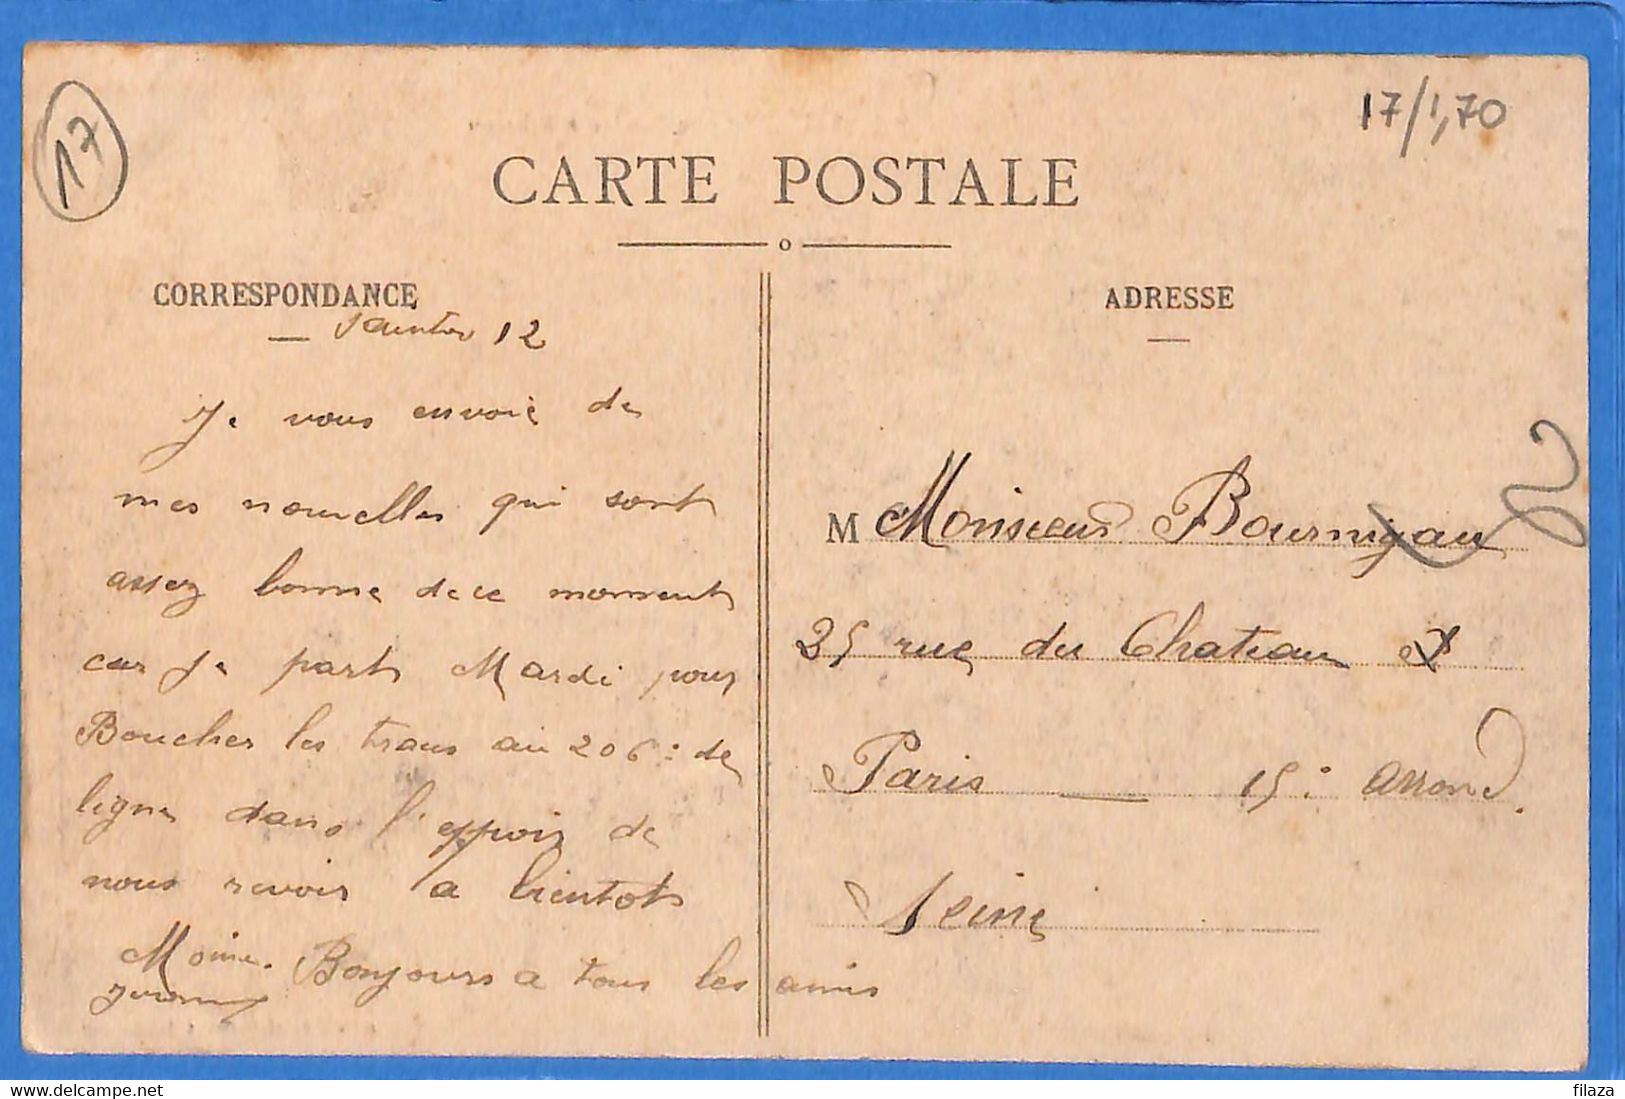 17
17/1,70
CARTE POSTALE
CORRESPONDANCE
ADRESSE
12
Je vous envoie de
mes nouvelles qui sont
assez bonne de ce moment
car je part Mardi pour
Boucher les traus au 206e de
ligne dans l'espoir de
nous revoir a bientot
Moine. Bonjours a tous les amis
M Monsieur Bournigau
25 rue du Chateau
Paris — 15e arrond.
Seine
filaza